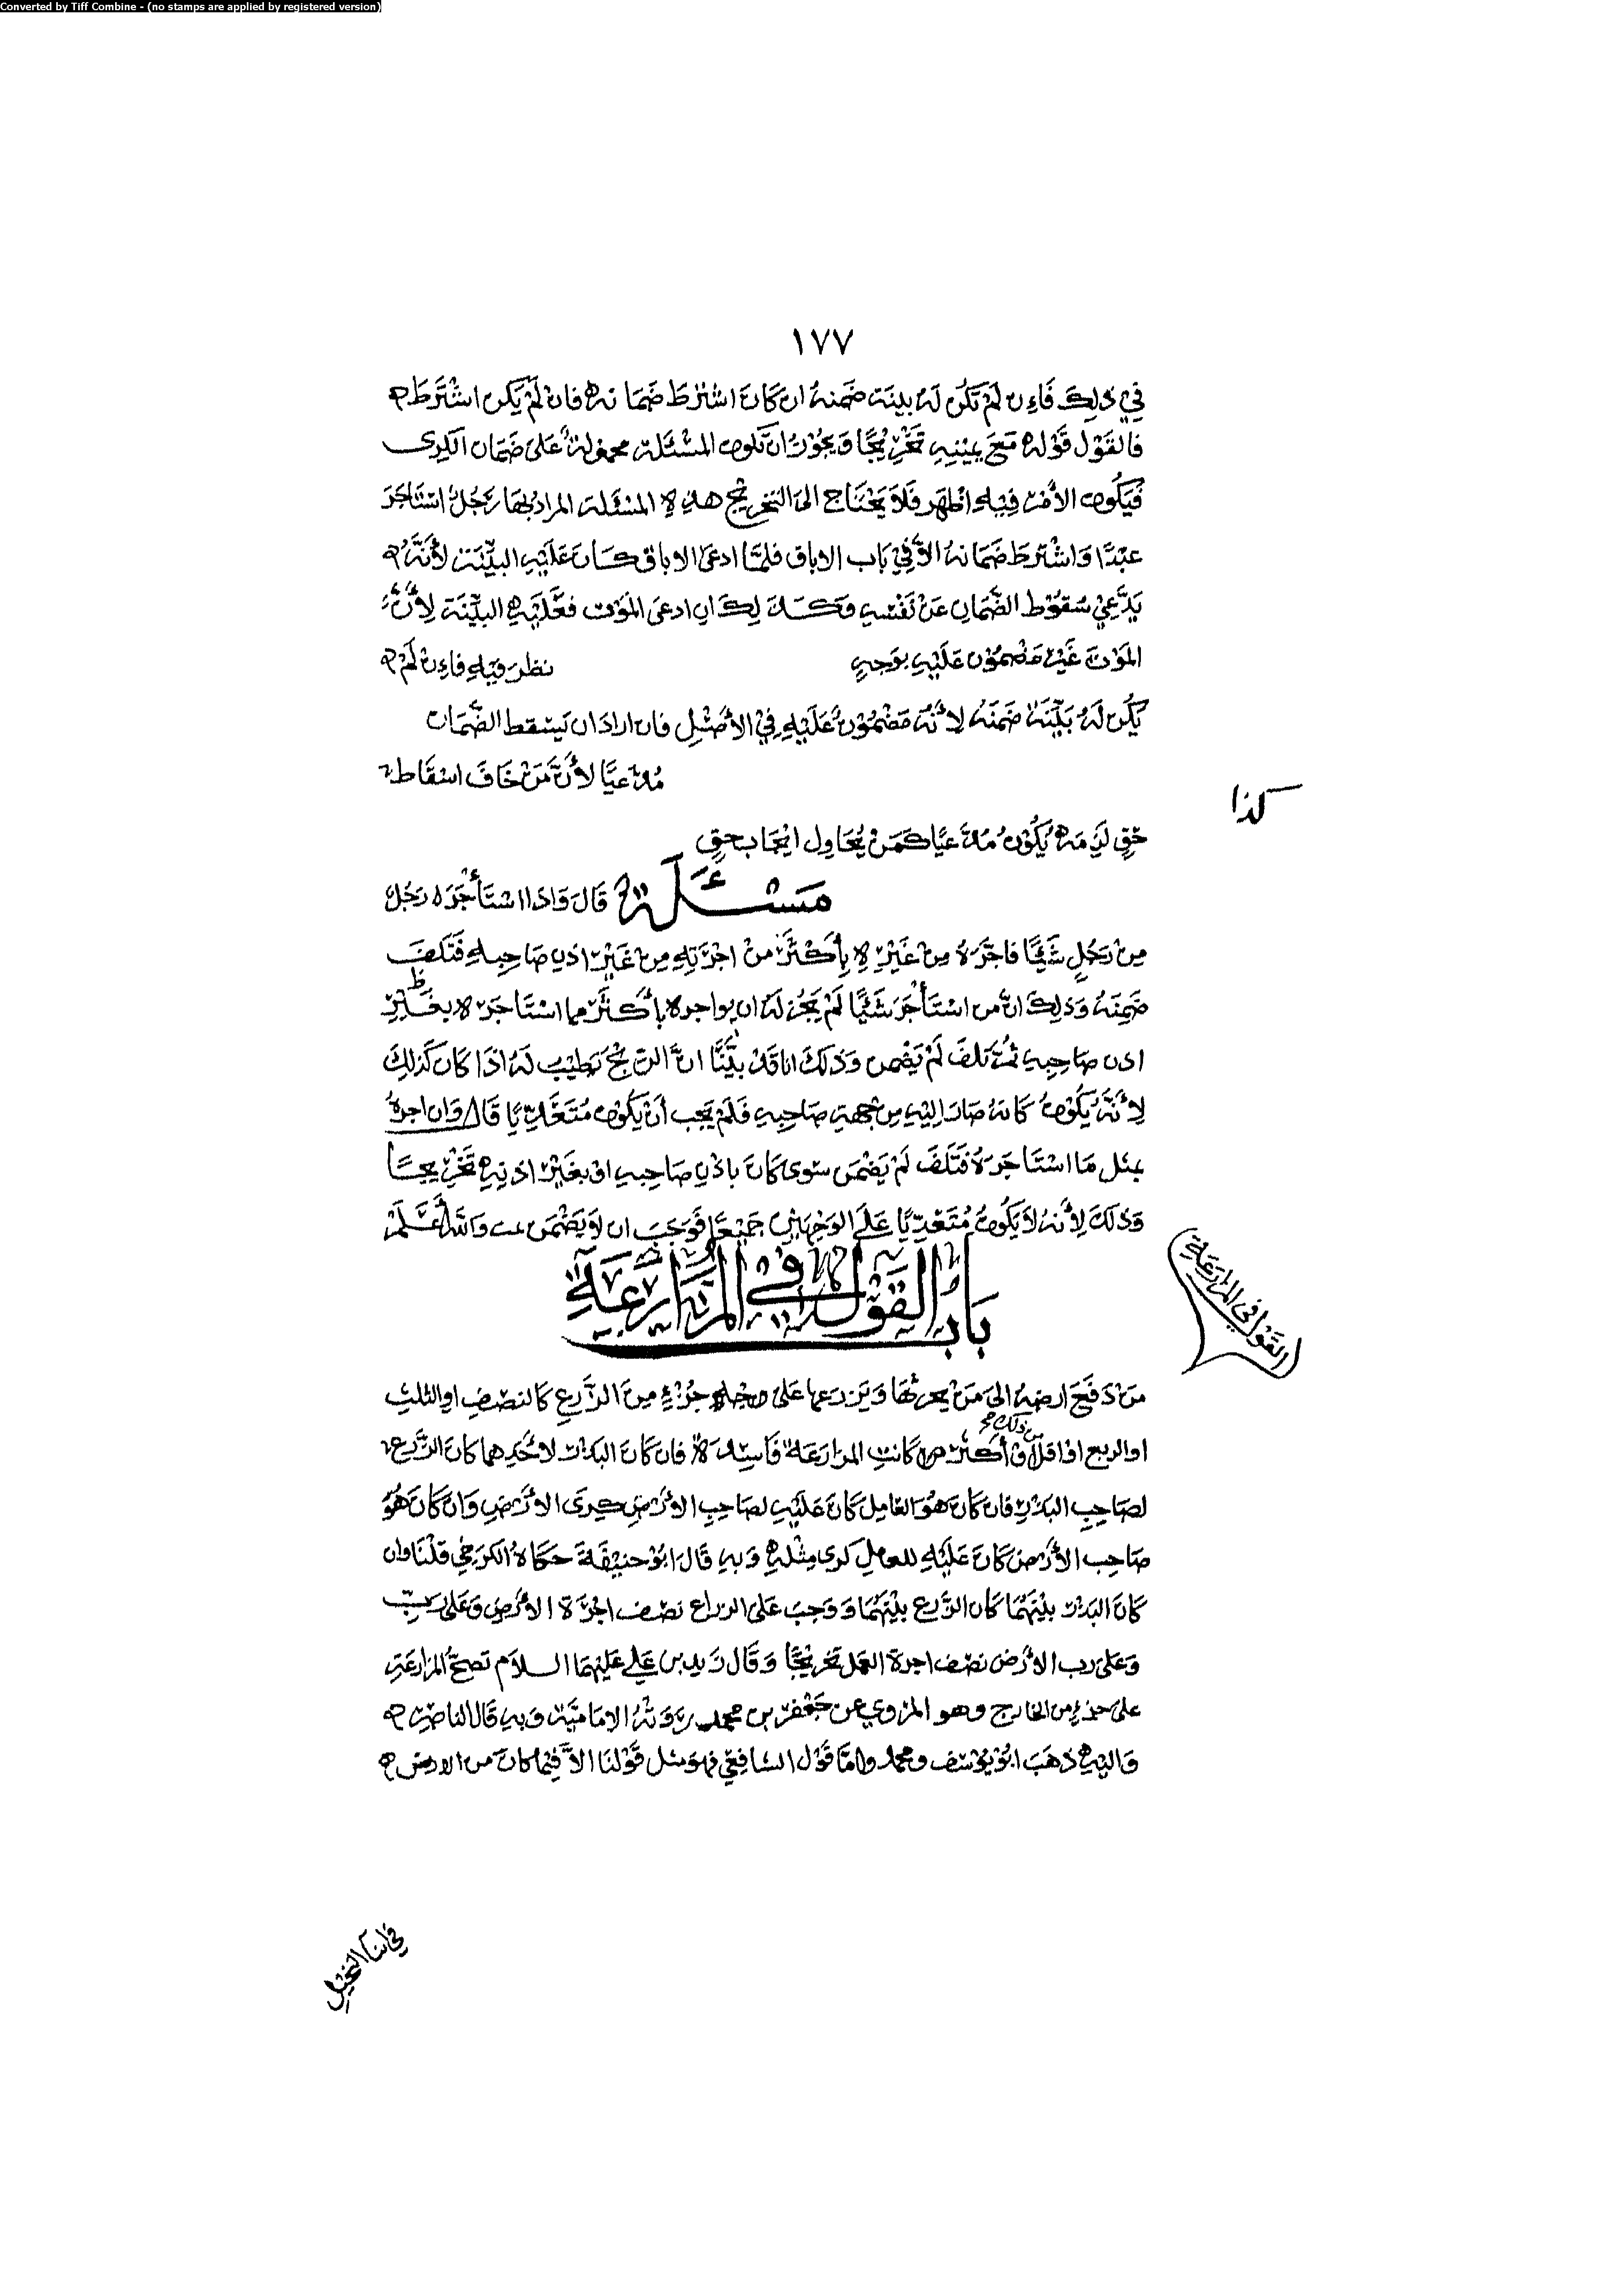 Converted by Tiff Combine - (no stamps are applied by registered version)
١٧٧
في ذلك فاءن لم تكن له بينة ضمنه ان كان اشترط ضمانه فان لم يكن اشترط
فالقول قوله مع يمينه تخريجًا ويجوز ان تكون المسئلة محمولة على ضمان الكرى
فيكون الأمر فيه اظهر فلا يحتاج الى التخريج هذه المسئلة المراد بها رجل استاجر
عبدًا واشترط ضمانه الا في باب الاباق فلما ادعى الاباق كان عليه البينة لأنه
يدعي سقوط الضمان عن نفسه وكذلك ان ادعى الموت فعليه البينة لأن
الموت غير مضمون عليه بوجه نظر فيه فاءن لم
يكن له بينة ضمنه لأنه مضمون عليه في الأصل فان اراد ان يسقط الضمان
مدعيًا لأن من خاف اسقاط
كذا
حق لزمه يكون مدعيًا كمن يحاول ايجاب حق
مسئلة قال واذا استأجره رجل
من رجل شيئًا فاجره من غيره بأكثر من اجرته من غير اذن صاحبه فتلف
ضمنه وذلك ان من استأجر شيئًا لم يجز له ان يواجره بأكثر مما استاجره بغير
اذن صاحبه ثم تلف لم يضمن وذلك انا قد بينا ان الربح يطيب له اذا كان كذلك
لأنه يكون كانه صار اليه من جهة صاحبه فلم يجب أن يكون متعديًا قال وان اجره
بمثل ما استاجره فتلف لم يضمن سوى كان باذن صاحبه او بغير اذنه تخريجًا
وذلك لأنه لا يكون متعديًا على الوجهين جميعًا فوجب ان لا يضمن والله أعلم
باب القول في المزارعة
القول في المزارعة
من دفع ارضه الى من يحرثها ويزرعها على جزء من الزرع كالنصف او الثلث
من ذلك
او الربع او اقل او أكثر كانت المزارعة فاسدة فان كان البذر لأحدهما كان الزرع
لصاحب البذر فان كان هو العامل كان عليه لصاحب الأرض كرى الأرض وان كان هو
صاحب الأرض كان عليه للعامل كرى مثله وبه قال ابو حنيفة حكاه الكرخي قلنا وان
كان البذر بينهما كان الزرع بينهما ووجب على الزراع نصف اجرة الأرض وعلى رب
وعلى رب الأرض نصف اجرة العمل تخريجًا وقال زيد بن علي عليهما السلام تصح المزارعة
على جزء من الخارج وهو المروي عن جعفر بن محمد روته الامامية وبه قال الناصر
واليه ذهب ابو يوسف ومحمد واما قول الشافعي فهو مثل قولنا الا فيما كان من الارض